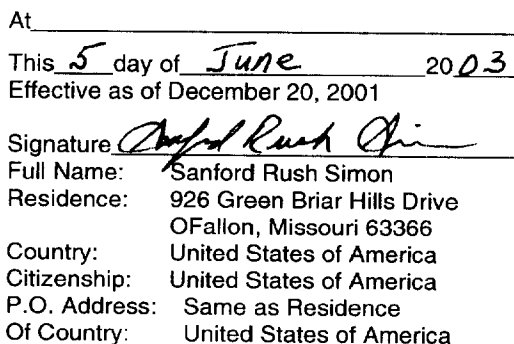 At
This 5 day of June 2003
Effective as of December 20, 2001
Signature Sanford Rush Simon
Full Name: Sanford Rush Simon
Residence: 926 Green Briar Hills Drive
OFallon, Missouri 63366
Country: United States of America
Citizenship: United States of America
P.O. Address: Same as Residence
Of Country: United States of America